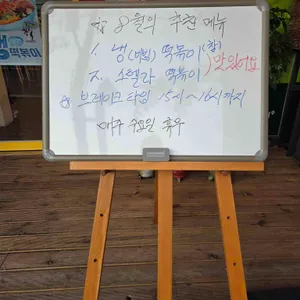 ☆ 8월의 추천 메뉴
1. 냉(비빔) 떡볶이(찰)
2. 수텔라 떡볶이 ) 맛있어요
☆ 브레이크 타임 15시~16시까지
매주 수요일 휴무
떡볶이